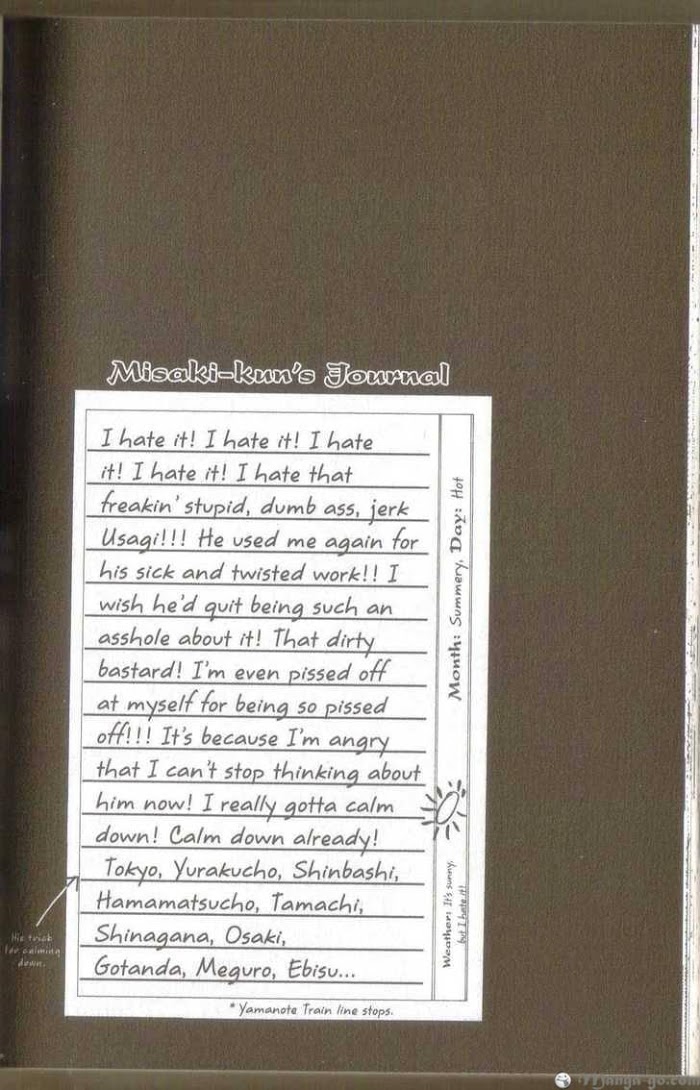 Misaki-kun's Journal
I hate it! I hate it! I hate
it! I hate it! I hate that
freakin' stupid, dumb ass, jerk
Usagi!!! He used me again for
his sick and twisted work!! I
wish he'd quit being such an
asshole about it! That dirty
bastard! I'm even pissed off
at myself for being so pissed
off!!! It's because I'm angry
that I can't stop thinking about
him now! I really gotta calm
down! Calm down already!
Tokyo, Yurakucho, Shinbashi,
Hamamatsucho, Tamachi,
Shinagana, Osaki,
Gotanda, Meguro, Ebisu...
Month: Summery, Day: Hot
Weather: It's sunny,
but I hate it!
His trick
for calming
down.
* Yamanote Train line stops.